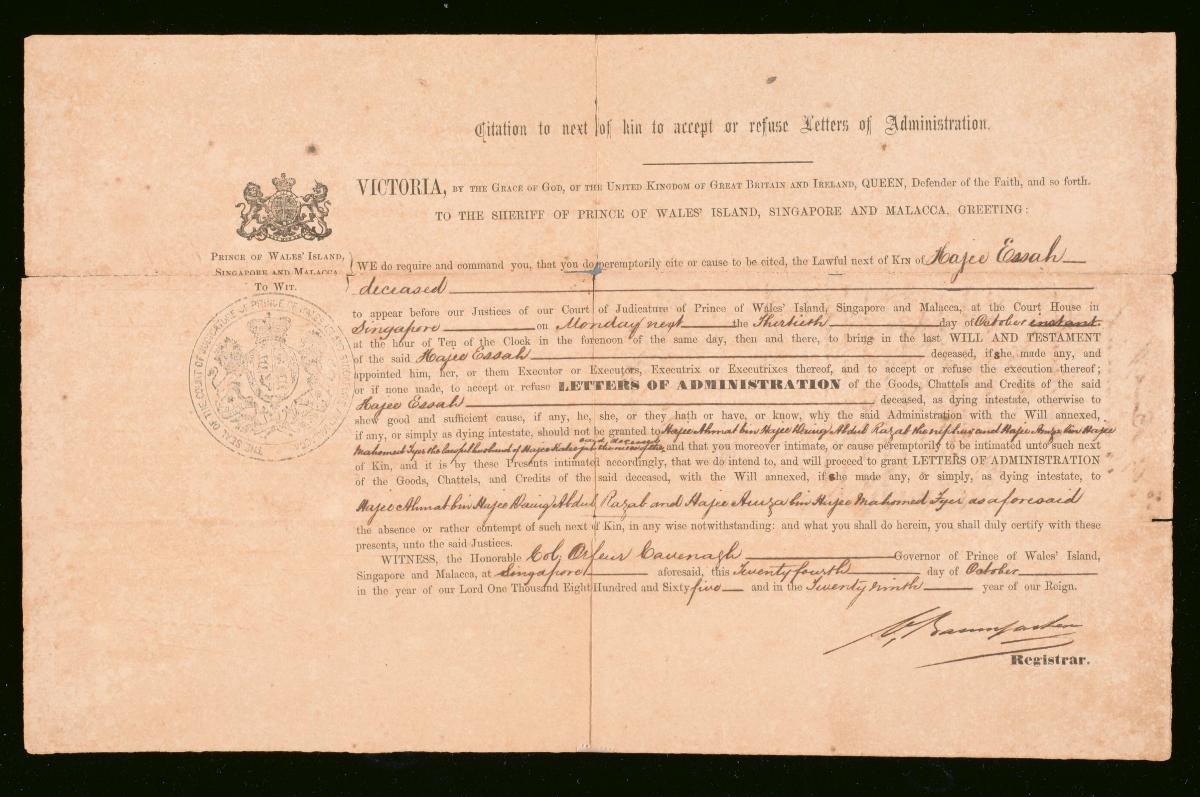 Citation to next of kin to accept or refuse Letters of Administration.
VICTORIA, BY THE GRACE OF GOD, OF THE UNITED KINGDOM OF GREAT BRITAIN AND IRELAND, QUEEN, Defender of the Faith, and so forth.
TO THE SHERIFF OF PRINCE OF WALES' ISLAND, SINGAPORE AND MALACCA, GREETING:
PRINCE OF WALES' ISLAND,
SINGAPORE AND MALACCA
TO WIT.
WE do require and command you, that you do peremptorily cite or cause to be cited, the Lawful next of KIN of Hajee Essah
deceased
to appear before our Justices of our Court of Judicature of Prince of Wales' Island, Singapore and Malacca, at the Court House in
Singapore on Monday next the Thirtieth day of October instant
at the hour of Ten of the Clock in the forenoon of the same day, then and there, to bring in the last WILL AND TESTAMENT
of the said Hajee Essah deceased, if she made any, and
appointed him, her, or them Executor or Executors, Executrix or Executrixes thereof, and to accept or refuse the execution thereof;
or if none made, to accept or refuse LETTERS OF ADMINISTRATION of the Goods, Chattels and Credits of the said
Hajee Essah deceased, as dying intestate, otherwise to
shew good and sufficient cause, if any, he, she, or they hath or have, or know, why the said Administration with the Will annexed,
if any, or simply as dying intestate, should not be granted to Hajee Ahmat bin Hajee Abdul Razal the nephew and Hajee bin Hajee
Mahomed Tyer the lawful husband of Hajee the niece of the said deceased and that you moreover intimate, or cause peremptorily to be intimated unto such next
of Kin, and it is by these Presents intimated accordingly, that we do intend to, and will proceed to grant LETTERS OF ADMINISTRATION
of the Goods, Chattels, and Credits of the said deceased, with the Will annexed, if she made any, or simply, as dying intestate, to
Hajee Ahmat bin Hajee Abdul Razab and Hajee bin Hajee Mahomed Tyer as aforesaid
the absence or rather contempt of such next of Kin, in any wise notwithstanding: and what you shall do herein, you shall duly certify with these
presents, unto the said Justices.
WITNESS, the Honorable Col. Orfeur Cavenagh Governor of Prince of Wales' Island,
Singapore and Malacca, at Singapore aforesaid, this Twenty fourth day of October
in the year of our Lord One Thousand Eight Hundred and Sixty five and in the Twenty ninth year of our Reign.
Baumgarten
Registrar.